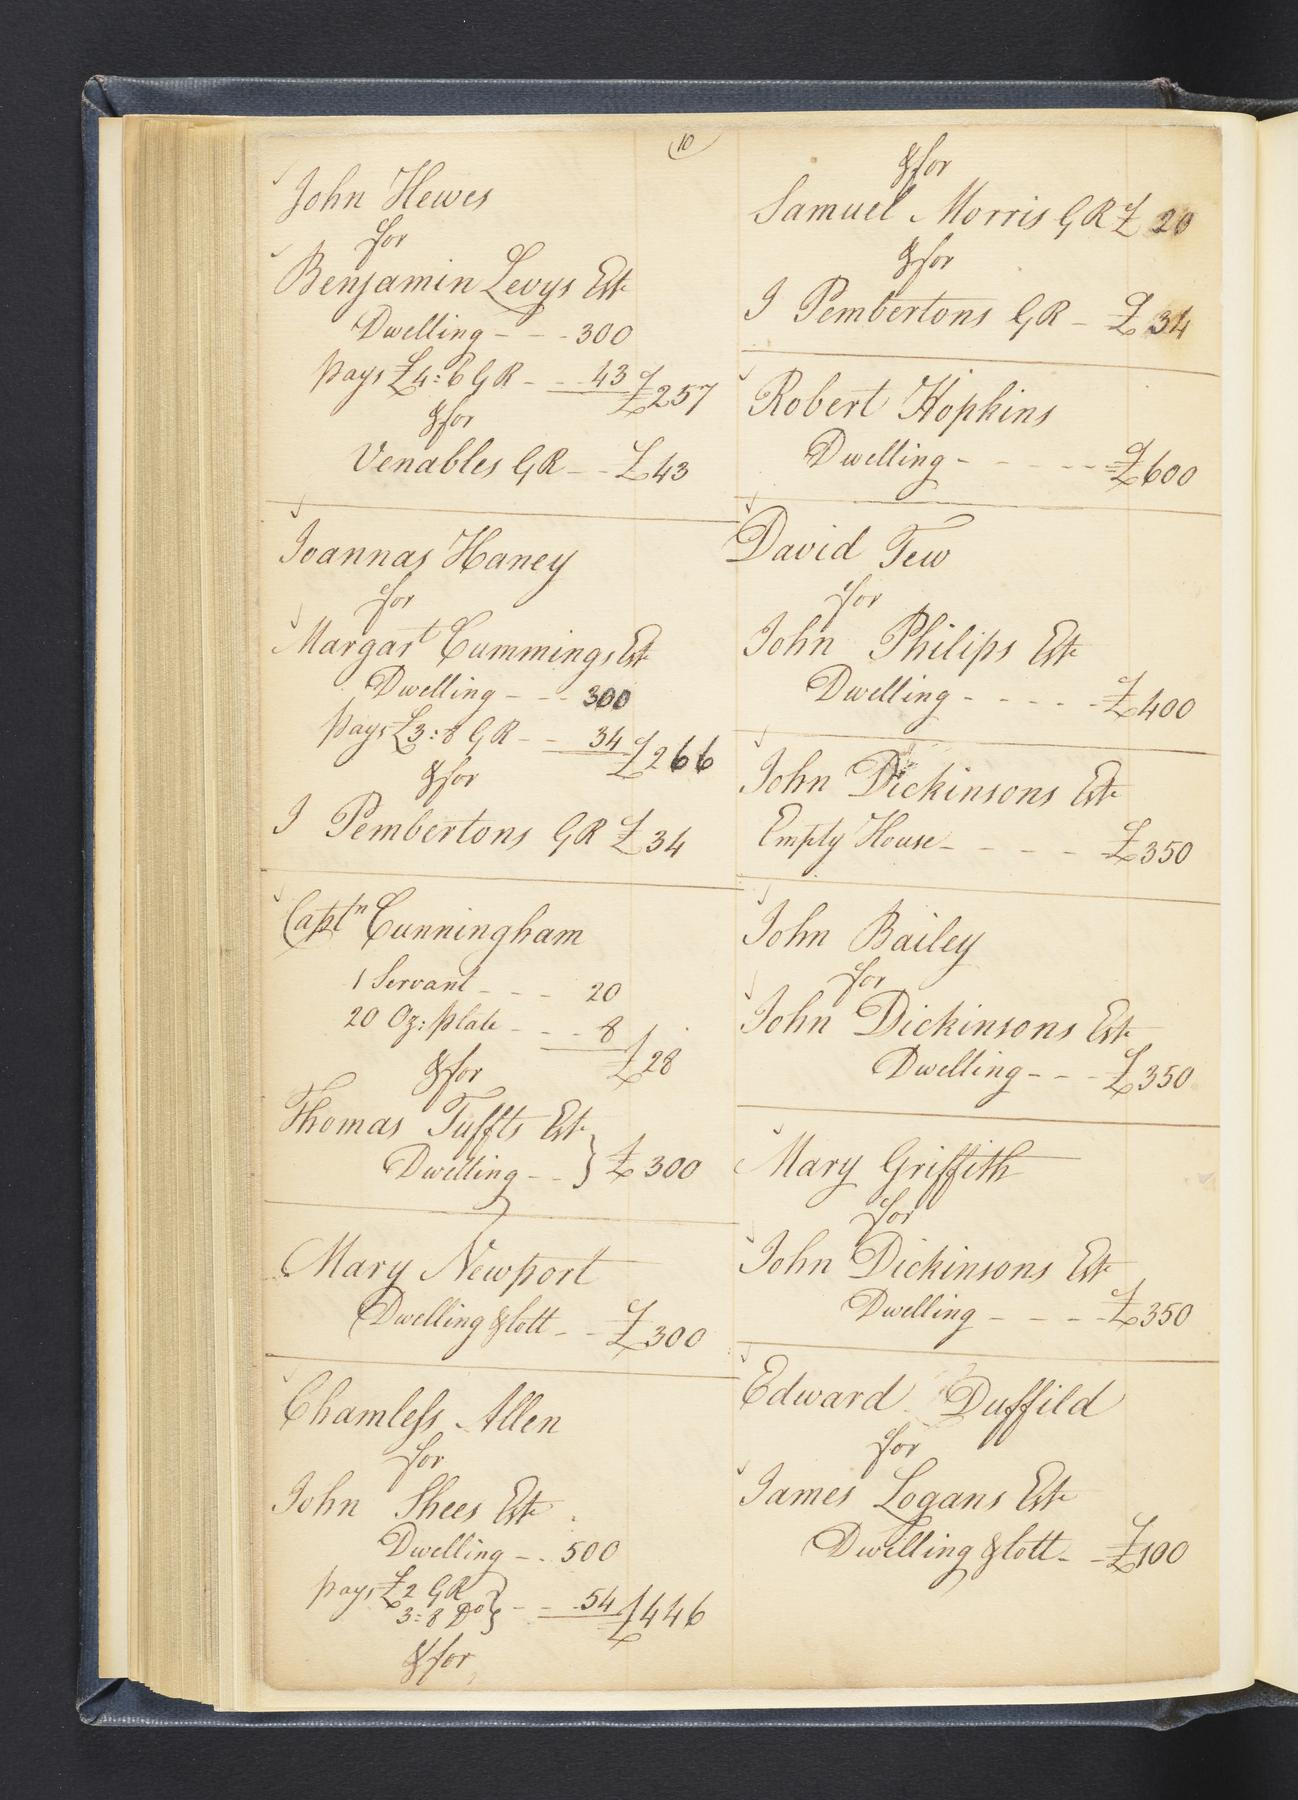 10
John Hewes
for
Benjamin Levys Est
Dwelling - - - 300
pays £4:6 GR - - 43 £257
&for
Venables GR - - £43
Joannas Haney
for
Margart Cummings Est
Dwelling - - - 300
pays £3:8 GR - - 34 £266
&for
I Pembertons GR £34
Captn Cunningham
1 Servant - - - 20
20 Oz: plate - - - 8
£28
&for
Thomas Tuffts Est
Dwelling - - } £300
Mary Newport
Dwelling & lott - - £300
Chamless Allen
for
John Shees Est
Dwelling - - 500
pays £2 GR
3:8 Do } - - 54 £446
&for
&for
Samuel Morris GR £20
&for
I Pembertons GR - £34
Robert Hopkins
Dwelling - - - - - £600
David Tew
for
John Philips Est
Dwelling - - - - - £400
John Dickinsons Est
Empty House - - - - £350
John Bailey
for
John Dickinsons Est
Dwelling - - - £350
Mary Griffith
for
John Dickinsons Est
Dwelling - - - - £350
Edward Duffild
for
James Logans Est
Dwelling & lott - - £100